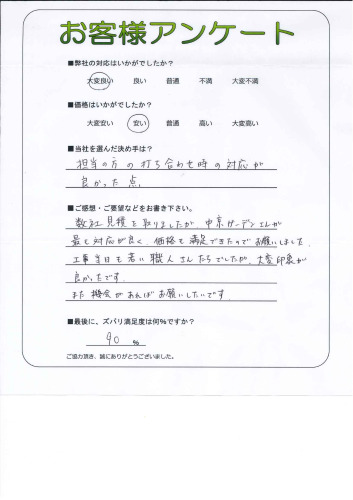 お客様アンケート
■弊社の対応はいかがでしたか?
大変良い 良い 普通 不満 大変不満
■価格はいかがでしたか?
大変安い 安い 普通 高い 大変高い
■当社を選んだ決め手は?
担当の方の打ち合わせ時の対応が
良かった点
■ご感想・ご要望などをお書き下さい。
数社見積を取りましたが 中京ガーデンさんが
最も対応が良く、価格も満足できたのでお願いしました。
工事当日も若い職人さんたちでしたが、大変印象が
良かったです。
また機会があればお願いしたいです。
■最後に、ズバリ満足度は何%ですか?
90 %
ご協力頂き、誠にありがとうございました。